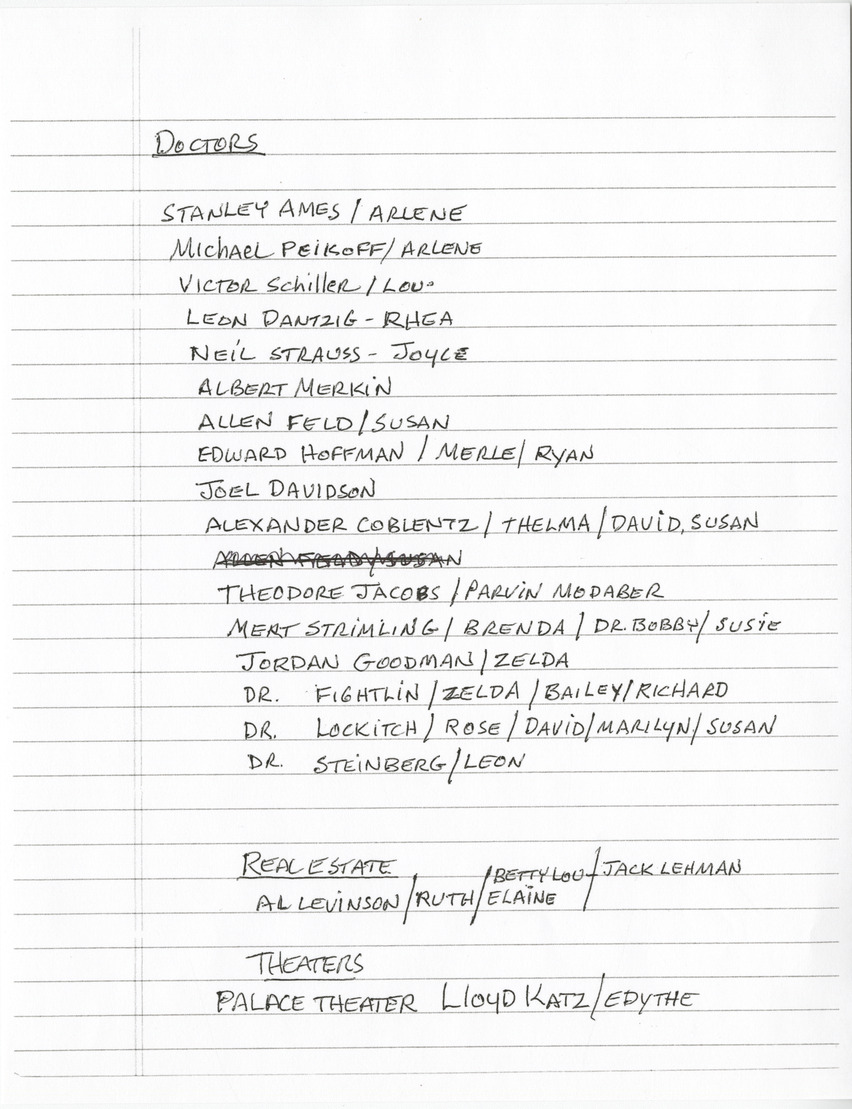 DOCTORS
STANLEY AMES / ARLENE
MichAEL PEiKOFF / ARLENE
VICTOR Schiller / LOU
LEON DANTZIG - RHEA
NEiL STRAUSS - JOYCE
ALBERT MERKiN
ALLEN FELD / SUSAN
EDWARD HOFFMAN / MERLE / RYAN
JOEL DAVIDSON
ALEXANDER COBLENTZ / THELMA / DAViD, SUSAN
THEODORE JACOBS / PARViN MODABER
MERT STRIMLING / BRENDA / DR. BOBBY / SUSiE
JORDAN GOODMAN / ZELDA
DR. FIGHTLIN / ZELDA / BAILEY / RICHARD
DR. LOCKiTCH / ROSE / DAViD / MARILYN / SUSAN
DR. STEiNBERG / LEON
REAL ESTATE
BETTY LOU / JACK LEHMAN
AL LEVINSON / RUTH / ELAiNE
THEATERS
PALACE THEATER LloyD KATZ / EDYTHE